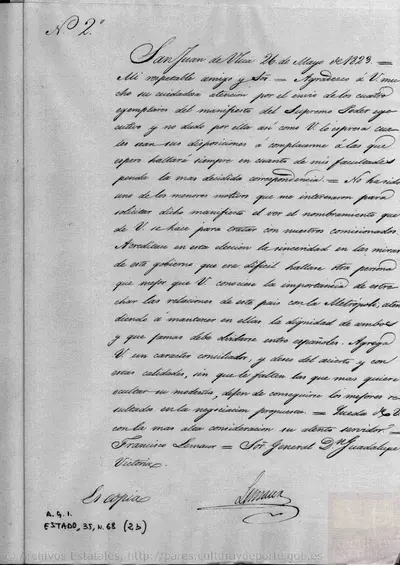 Nº 2º
San Juan de Ulua 26 de Mayo de 1823. =
Mi respetable amigo y Sor = Agradezco á V. mu-
cho su cuidadosa atencion por el envio de los cuatro
exemplares del manifiesto del Supremo Poder eje-
cutivo y no dudo por ella asi como V. lo espresa cua-
les son sus disposiciones á complacerme á las que
espero hallará siempre en cuanto de mis facultades
penda la mas decidida correspondencia. = No ha sido
uno de los menores motivos que me interesaron para
solicitar dicho manifiesto el ver el nombramiento que
de V. se hace para tratar con nuestros comisionados.
Acreditase en esta eleccion la sinceridad en las miras
de este gobierno que era dificil hallase otra persona
que mejor que V. conociese la importancia de estre-
char las relaciones de este pais con la Metrópoli, aten-
diendo á mantener en ellas la dignidad de ambos
y que jamas debe olvidarse entre españoles. Agrega
V. un caracter conciliador, y deseo del acierto y con
estas calidades, sin que le falten las que mas quiere
ocultar su modestia, dejen de conseguirse los mejores re-
sultados en la negociacion propuesta. = Queda de V.
con la mas alta consideracion su atento servidor =
Francisco Lemaur = Sor General Dn Guadalupe
Victoria.
Es copia
Lemaur
A.G.I.
ESTADO, 35, N. 68 (2b)
© Archivos Estatales, http://pares.culturaydeporte.gob.es